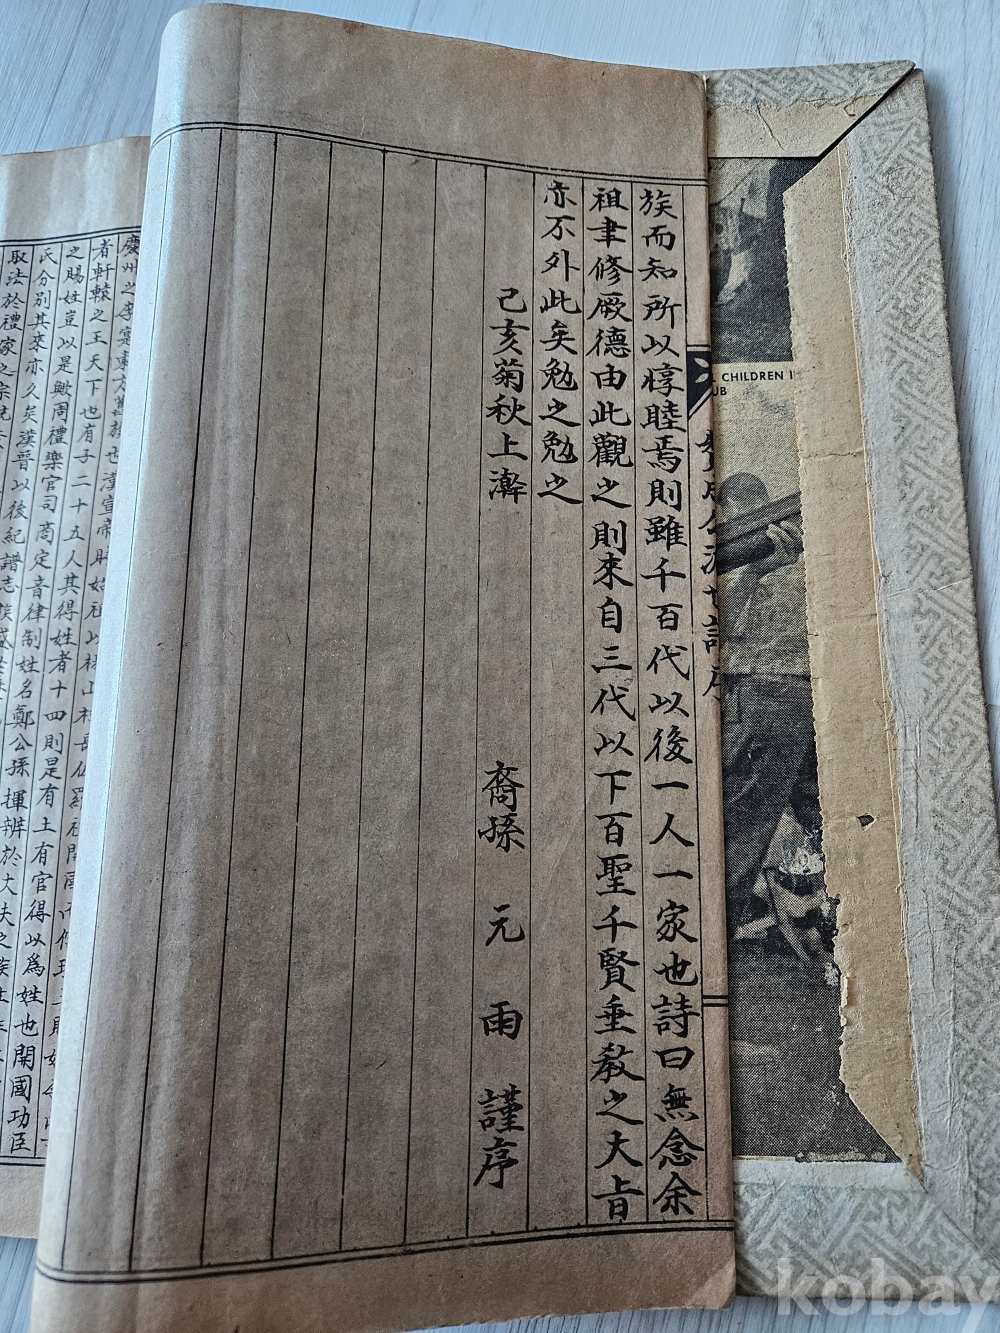 CHILDREN I
UB
公派世譜序
族而知所以惇睦焉則雖千百代以後一人一家也詩曰無念余
祖聿修厥德由此觀之則來自三代以下百聖千賢垂敎之大旨
亦不外此矣勉之勉之
己亥菊秋上澣 裔孫 元雨 謹序
慶州之李寔東方舊族也漢宣帝時始祖以
者軒轅之王天下也有子二十五人其得姓者十四則是有土有官得以爲姓也開國功臣
之賜姓豈以是歟周禮樂官司商定音律制姓名鄭公孫揮辨於大夫之族姓
氏分別其來亦久矣漢晉以後紀譜志族盛
取法於禮家之宗統
kobay